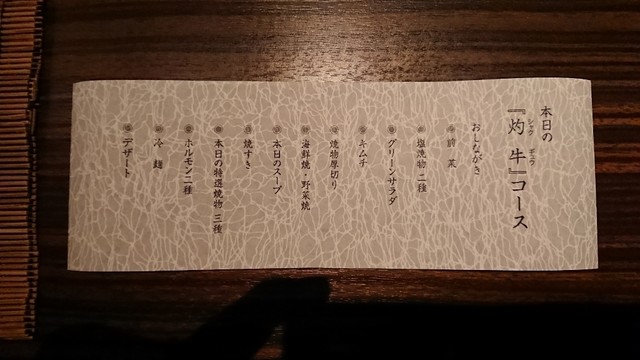 本日の
『灼牛』コース
シャク ギュウ
おしながき
前菜
塩焼物 二種
グリーンサラダ
キムチ
焼物厚切り
海鮮焼・野菜焼
本日のスープ
焼すき
本日の特選焼物 三種
ホルモン二種
冷麺
デザート